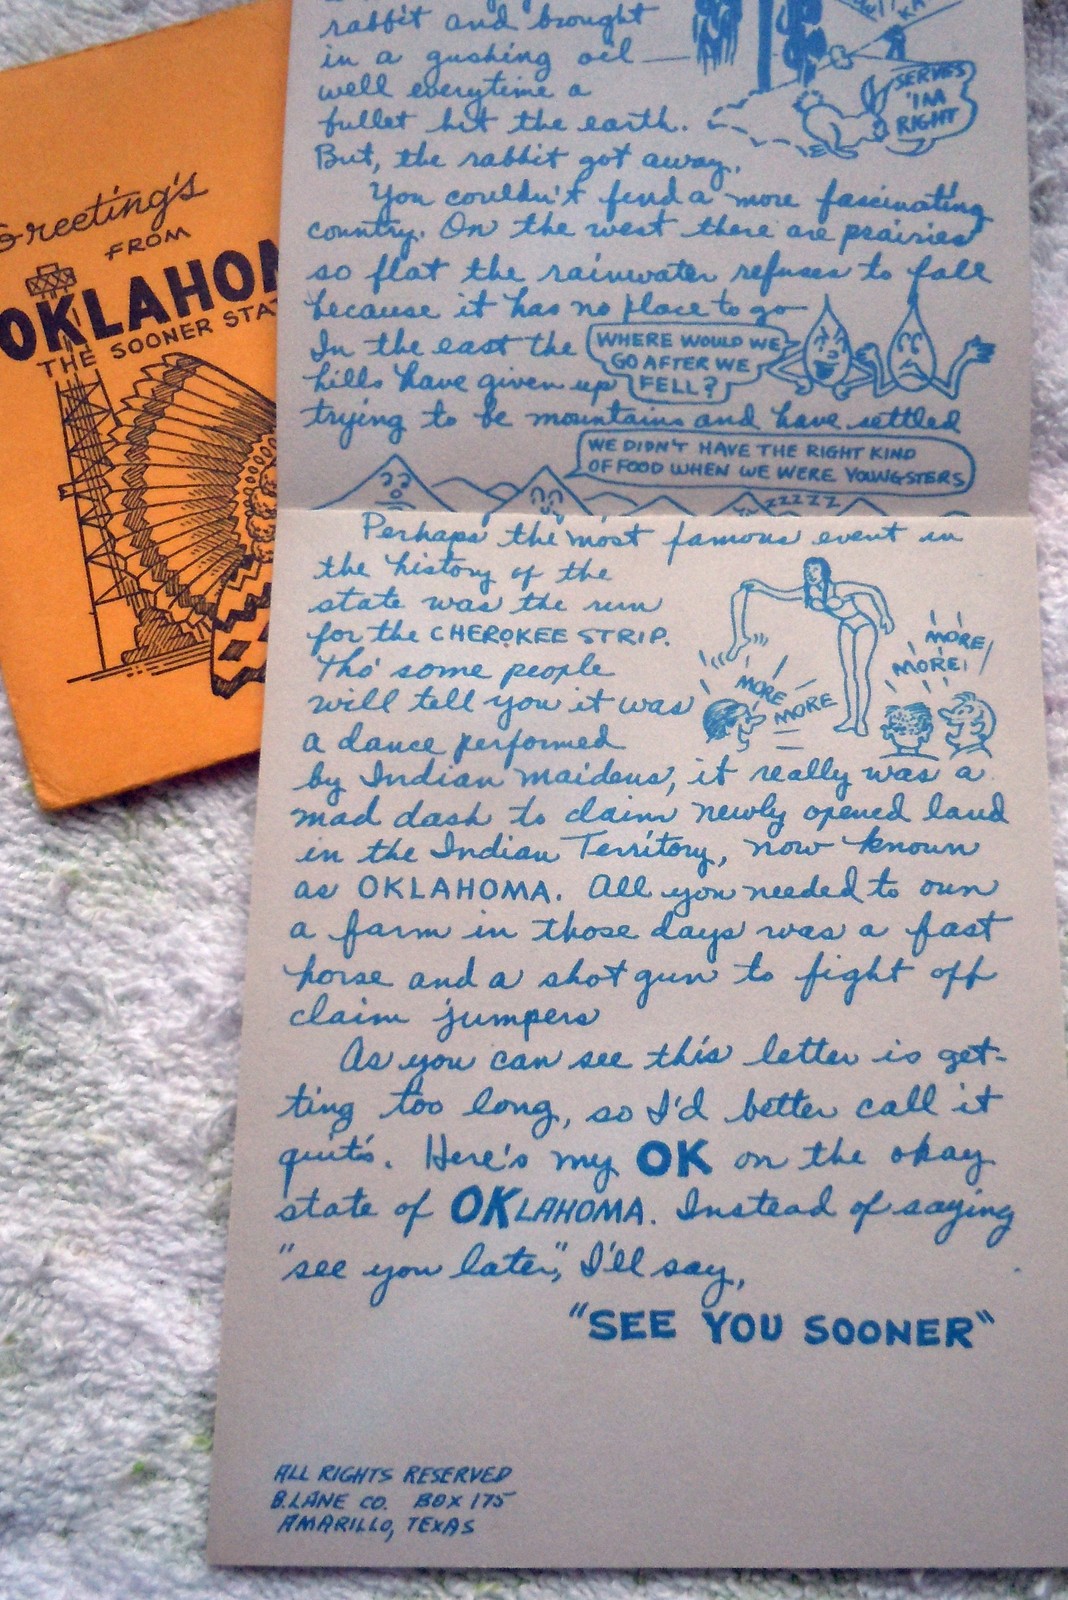 Greeting's
FROM
OKLAHOM
THE SOONER STA
rabbit and brought
in a gushing oil
well everytime a
bullet hit the earth.
But, the rabbit got away.
SERVES
'IM
RIGHT
You couldn't find a more fascinating
country. On the west there are prairies
so flat the rainwater refuses to fall
because it has no place to go
In the east the
hills have given up
trying to be mountains and have settled
WHERE WOULD WE
GO AFTER WE
FELL?
WE DIDN'T HAVE THE RIGHT KIND
OF FOOD WHEN WE WERE YOUNGSTERS
ZZZZZ
Perhaps the most famous event in
the history of the
state was the run
for the CHEROKEE STRIP.
Tho' some people
will tell you it was
a dance performed
MORE
MORE
MORE
MORE!
by Indian maidens, it really was a
mad dash to claim newly opened land
in the Indian Territory, now known
as OKLAHOMA. All you needed to own
a farm in those days was a fast
horse and a shot gun to fight off
claim jumpers
As you can see this letter is get-
ting too long, so I'd better call it
quits. Here's my OK on the okay
state of OKLAHOMA. Instead of saying
"see you later," I'll say,
"SEE YOU SOONER"
ALL RIGHTS RESERVED
B. LANE CO. BOX 175
AMARILLO, TEXAS